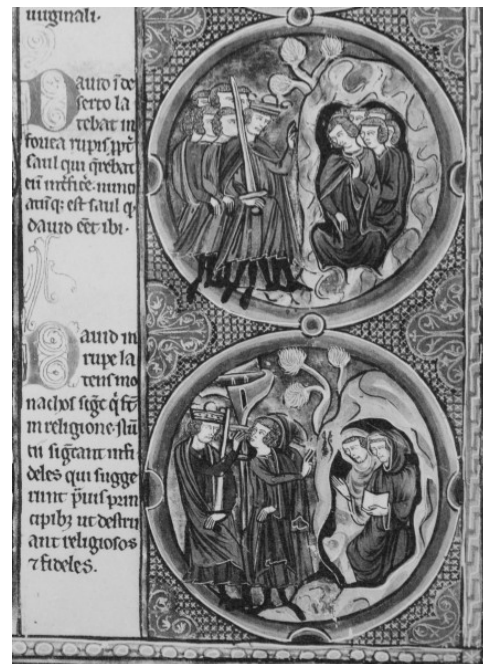 uirginali.
Dauid ī de
serto la
tebat in
fouea rupis, ꝓpt̄
saul qui q̄rebat
eū int̄fic̄e. nunci
atūq; est saul q̄
dauid eēt ibi.
Dauid in
rupe la
tens mo
nachos sigt̄ q̄ st̄
in religione.
sig̅cant infi
deles qui sugge
runt p̄uis prin
cipibȝ ut destru
ant religiosos
⁊ fideles.